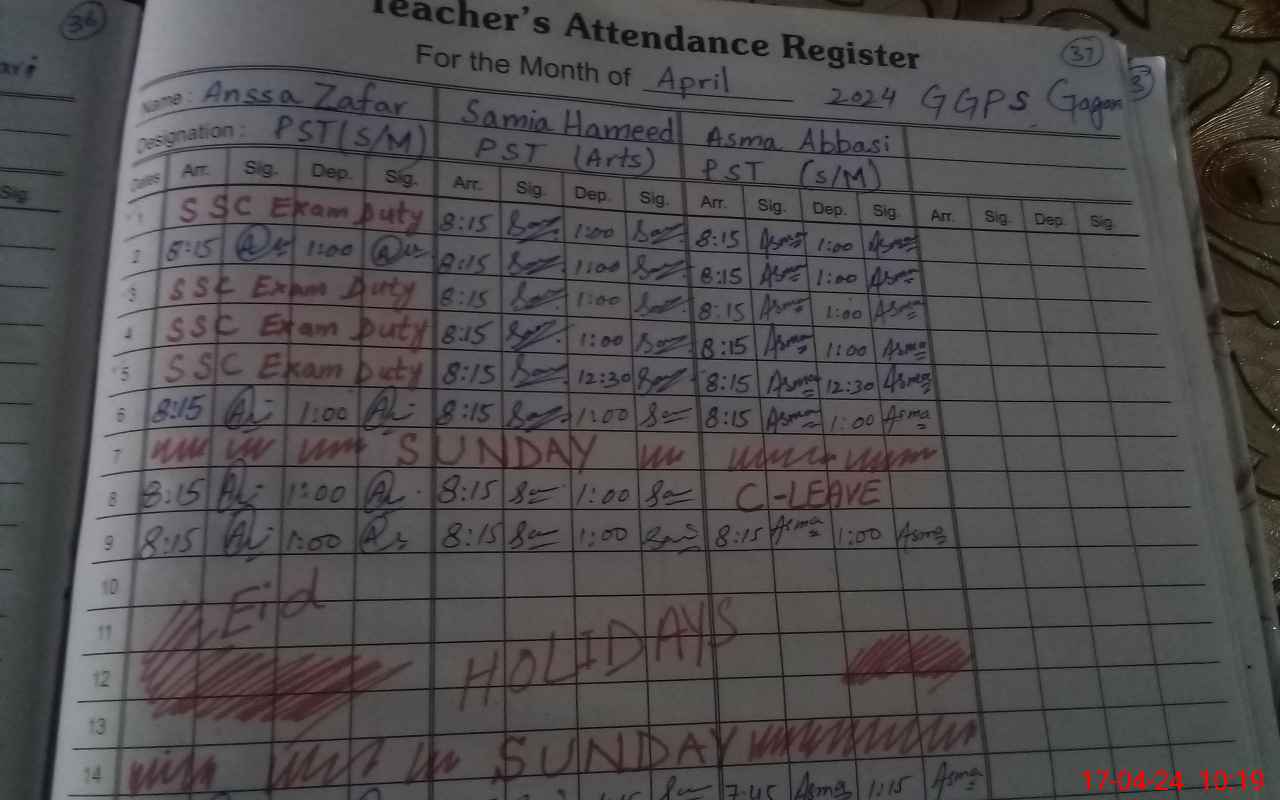 36
37
Teacher's Attendance Register
For the Month of April 2024 GGPS Gagan
Name: Anssa Zafar Samia Hameed Asma Abbasi
Designation: PST (S/M) PST (Arts) PST (S/M)
Dates Arr. Sig. Dep. Sig. Arr. Sig. Dep. Sig. Arr. Sig. Dep. Sig. Arr. Sig. Dep. Sig.
1 SSC Exam Duty 8:15 1:00 8:15 Asma 1:00 Asma
2 8:15 1:00 8:15 1:00 8:15 Asma 1:00 Asma
3 SSC Exam Duty 8:15 1:00 8:15 Asma 1:00 Asma
4 SSC Exam Duty 8:15 1:00 8:15 Asma 1:00 Asma
5 SSC Exam Duty 8:15 12:30 8:15 Asma 12:30 Asma
6 8:15 1:00 8:15 1:00 8:15 Asma 1:00 Asma
7 SUNDAY
8 8:15 1:00 8:15 1:00 C-LEAVE
9 8:15 1:00 8:15 1:00 8:15 Asma 1:00 Asma
10 Eid
11 HOLIDAYS
12
13
14 SUNDAY
7:45 Asma 1:15 Asma
Sig.
17-04-24 10:19